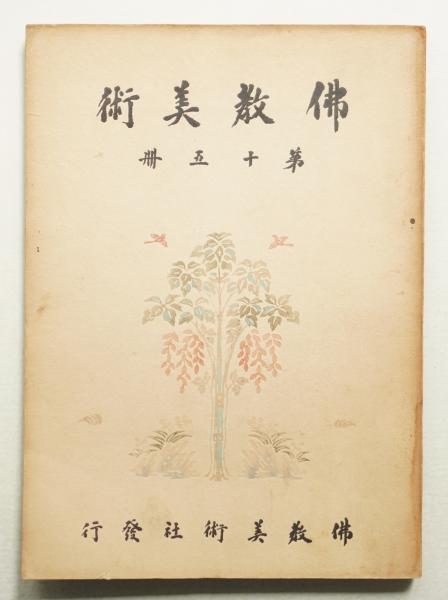 佛教美術
第十五册
佛教美術社發行